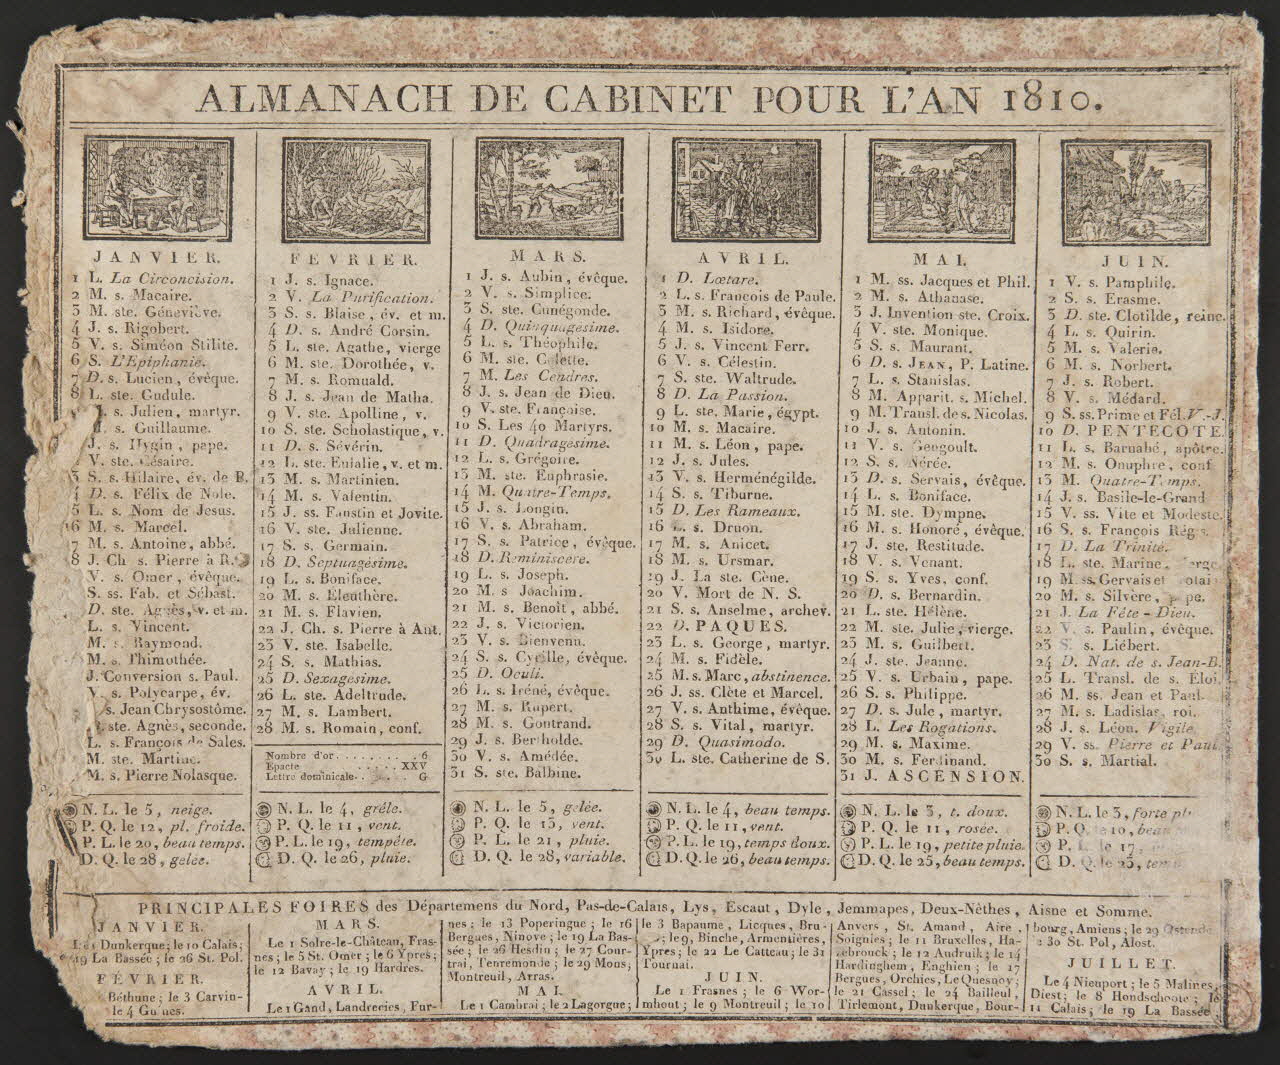 ALMANACH DE CABINET POUR L'AN 1810.
JANVIER.
1 L. La Circoncision.
2 M. s. Macaire.
3 M. ste. Géneviève.
4 J. s. Rigobert.
5 V. s. Siméon Stilite.
6 S. L'Epiphanie.
7 D. s. Lucien, évêque.
8 L. ste. Gudule.
s. Julien, martyr.
s. Guillaume.
J. s. Hygin, pape.
V. ste. Césaire.
3 S. s. Hilaire, év. de B.
4 D. s. Félix de Nole.
5 L. s. Nom de Jesus.
16 M. s. Marcel.
7 M. s. Antoine, abbé.
8 J. Ch s. Pierre à
V. s. Omer, évêque.
S. ss. Fab. et Sébast.
D. ste. Agnès, v. et m.
L. s. Vincent.
M. s. Raymond.
M. s. Thimothée.
J. Conversion s. Paul.
V. s. Polycarpe, év.
s. Jean Chrysostôme.
ste. Agnès, seconde.
L. s. François de Sales.
M. ste. Martine.
M. s. Pierre Nolasque.
N. L. le 5, neige.
P. Q. le 12, pl. froide.
P. L. le 20, beau temps.
D. Q. le 28, gelée.
FEVRIER.
1 J. s. Ignace.
2 V. La Purification.
3 S. s. Blaise, év. et m.
4 D. s. André Corsin.
5 L. ste. Agathe, vierge
6 M. ste. Dorothée, v.
7 M. s. Romuald.
8 J. s. Jean de Matha.
9 V. ste. Apolline, v.
10 S. ste. Scholastique, v.
11 D. s. Séverin.
12 L. ste. Eulalie, v. et m.
13 M. s. Martinien.
14 M. s. Valentin.
15 J. ss. Faustin et Jovite.
16 V. ste. Julienne.
17 S. s. Germain.
18 D. Septuagésime.
19 L. s. Boniface.
20 M. s. Eleuthère.
21 M. s. Flavien.
22 J. Ch. s. Pierre à Ant.
23 V. ste. Isabelle.
24 S. s. Mathias.
25 D. Sexagesime.
26 L. ste. Adeltrude.
27 M. s. Lambert.
28 M. s. Romain, conf.
Nombre d'or . . . . . . . . 6
Epacte . . . . . . XXV
Lettre dominicale . . . . . G
N. L. le 4, grêle.
P. Q. le 11, vent.
P. L. le 19, tempéte.
D. Q. le 26, pluie.
MARS.
1 J. s. Aubin, évêque.
2 V. s. Simplice.
3 S. ste. Cunégonde.
4 D. Quinquagesime.
5 L. s. Théophile.
6 M. ste. Colette.
7 M. Les Cendres.
8 J. s. Jean de Dieu.
9 V. ste. Françoise.
10 S. Les 40 Martyrs.
11 D. Quadragesime.
12 L. s. Grégoire.
13 M. ste. Euphrasie.
14 M. Quatre-Temps.
15 J. s. Longin.
16 V. s. Abraham.
17 S. s. Patrice, évêque.
18 D. Reminiscere.
19 L. s. Joseph.
20 M s Joachim.
21 M. s. Benoît, abbé.
22 J. s. Victorien.
23 V. s. Bienvenu.
24 S. s. Cyrille, évêque.
25 D. Oculi.
26 L. s. Iréné, évêque.
27 M. s. Rupert.
28 M. s. Gontrand.
29 J. s. Bertholde.
30 V. s. Amédée.
31 S. ste. Balbine.
N. L. le 5, gelée.
P. Q. le 13, vent.
P. L. le 21, pluie.
D. Q. le 28, variable.
AVRIL.
1 D. Lœtare.
2 L. s. François de Paule.
3 M. s. Richard, évêque.
4 M. s. Isidore.
5 J. s. Vincent Ferr.
6 V. s. Célestin.
7 S. ste. Waltrude.
8 D. La Passion.
9 L. ste. Marie, égypt.
10 M. s. Macaire.
11 M. s. Léon, pape.
12 J. s. Jules.
13 V. s. Herménégilde.
14 S. s. Tiburne.
15 D. Les Rameaux.
16 L. s. Druon.
17 M. s. Anicet.
18 M. s. Ursmar.
19 J. La ste. Cène.
20 V. Mort de N. S.
21 S. s. Anselme, archev.
22 D. PAQUES.
23 L. s. George, martyr.
24 M. s. Fidèle.
25 M. s. Marc, abstinence.
26 J. ss. Clète et Marcel.
27 V. s. Anthime, évêque.
28 S. s. Vital, martyr.
29 D. Quasimodo.
30 L. ste. Catherine de S.
N. L. le 4, beau temps.
P. Q. le 11, vent.
P. L. le 19, temps doux.
D. Q. le 26, beau temps.
MAI.
1 M. ss. Jacques et Phil.
2 M. s. Athanase.
3 J. Invention ste. Croix.
4 V. ste. Monique.
5 S. s. Maurant.
6 D. s. JEAN, P. Latine.
7 L. s. Stanislas.
8 M. Apparit. s. Michel.
9 M. Transl. de s. Nicolas.
10 J. s. Antonin.
11 V. s. Gengoult.
12 S. s. Nérée.
13 D. s. Servais, évêque.
14 L. s. Boniface.
15 M. ste. Dympne.
16 M. s. Honoré, évêque.
17 J. ste. Restitude.
18 V. s. Venant.
19 S. s. Yves, conf.
20 D. s. Bernardin.
21 L. ste. Hélène.
22 M. ste. Julie, vierge.
23 M. s. Guilbert.
24 J. ste. Jeanne.
25 V. s. Urbain, pape.
26 S. s. Philippe.
27 D. s. Jule, martyr.
28 L. Les Rogations.
29 M. s. Maxime.
30 M. s. Ferdinand.
31 J. ASCENSION.
N. L. le 3, t. doux.
P. Q. le 11, rosée.
P. L. le 19, petite pluie.
D. Q. le 25, beau temps.
JUIN.
1 V. s. Pamphile.
2 S. s. Erasme.
3 D. ste. Clotilde, reine.
4 L. s. Quirin.
5 M. s. Valerie.
6 M. s. Norbert.
7 J. s. Robert.
8 V. s. Médard.
9 S. ss. Prime et Fél. V.-J.
10 D. PENTECOTE.
11 L. s. Barnabé, apôtre.
12 M. s. Onuphre, conf
13 M. Quatre-Temps.
14 J. s. Basile-le-Grand
15 V. ss. Vite et Modeste.
16 S. s. François Régis.
17 D. La Trinité.
18 L. ste. Marine,
19 M. ss. Gervais et
20 M. s. Silvère, pape.
21 J. La Fête - Dieu.
22 V. s. Paulin, évêque.
23 S. s. Liébert.
24 D. Nat. de s. Jean-B.
25 L. Transl. de s. Eloi.
26 M. ss. Jean et Paul.
27 M. s. Ladislas, roi.
28 J. s. Léon. Vigile
29 V. ss. Pierre et Paul.
30 S. s. Martial.
N. L. le 3, forte
P. Q. le 10, beau
P. L. le 17,
D. Q. le 25,
PRINCIPALES FOIRES des Départemens du Nord, Pas-de-Calais, Lys, Escaut, Dyle, Jemmapes, Deux-Nèthes, Aisne et Somme.
JANVIER.
Le 1 Dunkerque; le 10 Calais;
19 La Bassée; le 26 St. Pol.
FÉVRIER.
Béthune; le 3 Carvin-
le 4 Guînes.
MARS.
Le 1 Solre-le-Château, Fras-
nes; le 5 St. Omer; le 6 Ypres;
le 12 Bavay; le 19 Hardres.
AVRIL.
Le 1 Gand, Landrecies, Fur-
nes; le 13 Poperingue; le 16
Bergues, Ninove; le 19 La Bas-
sée; le 26 Hesdin; le 27 Cour-
trai, Terremonde; le 29 Mons,
Montreuil, Arras.
MAI.
Le 1 Cambrai; le 2 Lagorgue;
le 3 Bapaume, Licques, Bru-
; le 9, Binche, Armentières,
Ypres; le 22 Le Catteau; le 31
Tournai.
JUIN.
Le 1 Frasnes; le 6 Wor-
mhout; le 9 Montreuil; le 10
Anvers, St. Amand, Aire,
Soignies; le 11 Bruxelles, Ha-
zebrouck; le 12 Audruik; le 14
Hardinghem, Enghien; le 17
Bergues, Orchies, Le Quesnoy;
le 21 Cassel; le 24 Bailleul,
Tirlemont, Dunkerque, Bour-
bourg, Amiens; le 29 Ostende
30 St. Pol, Alost.
JUILLET.
Le 4 Nieuport; le 5 Malines,
Diest; le 8 Hondschoote; le
11 Calais; le 19 La Bassée